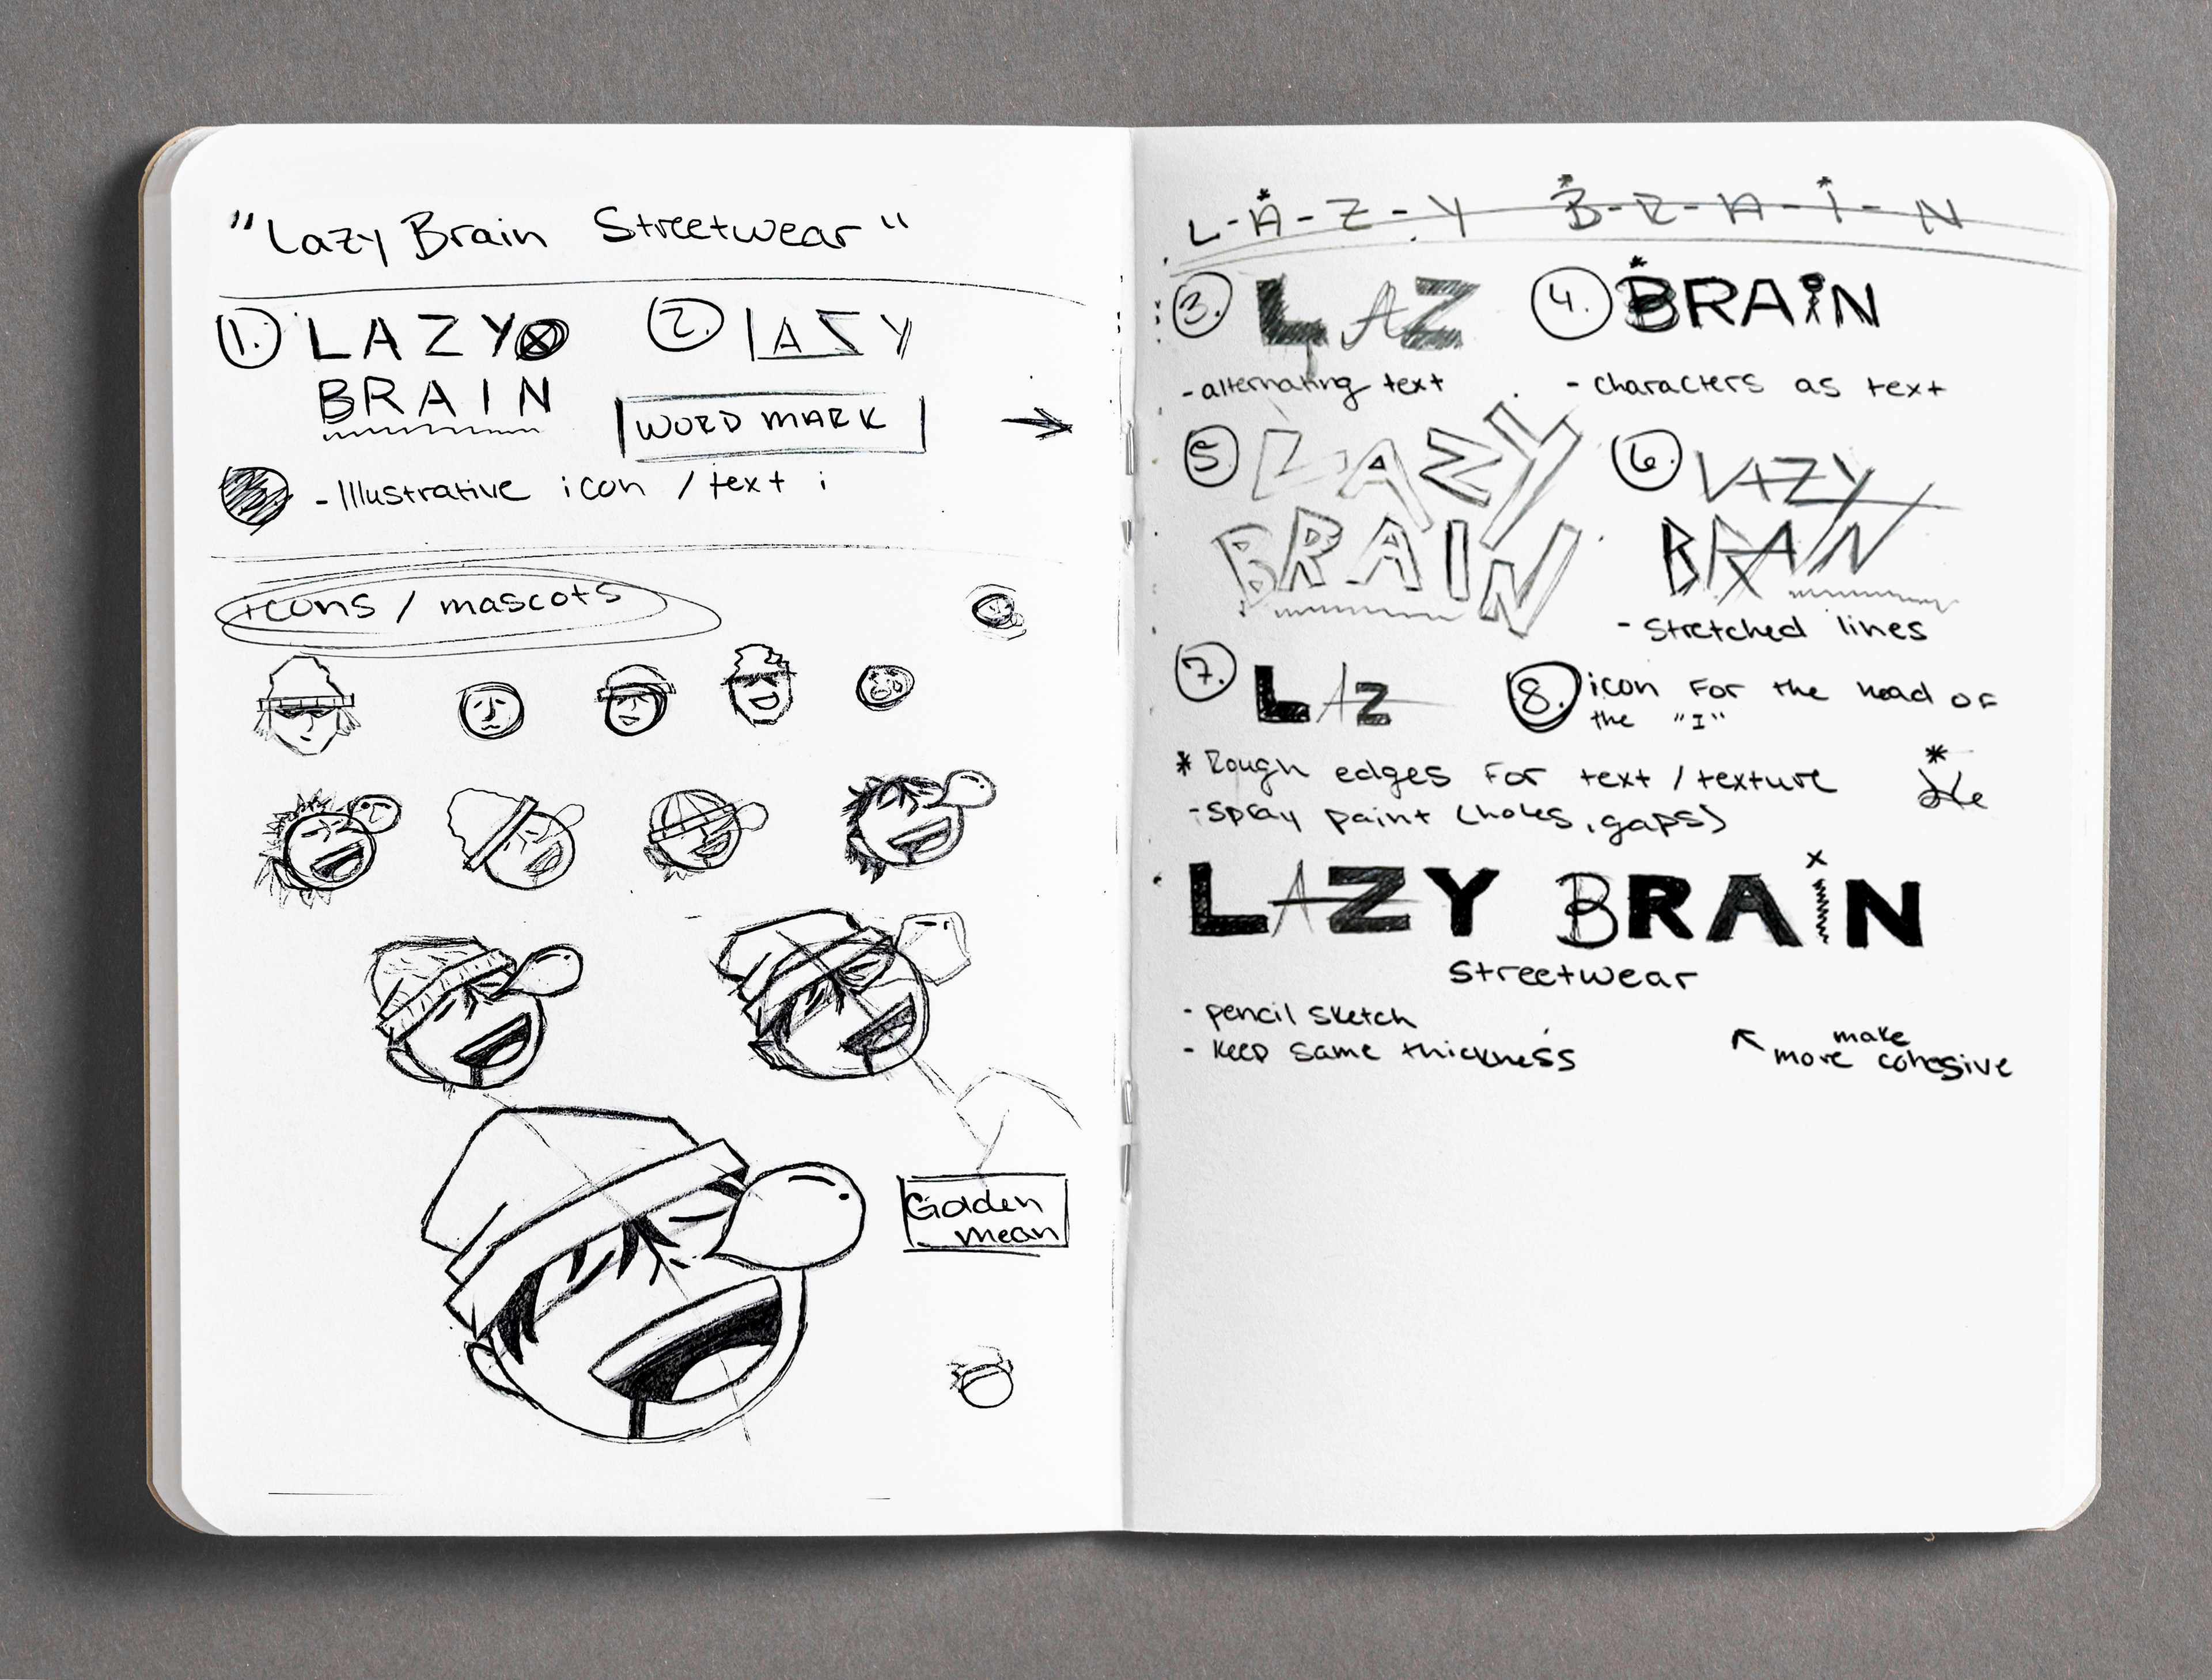 "Lazy Brain Streetwear"
1. LAZY
BRAIN
2. LAZY
WORD MARK
- Illustrative icon / text i
icons / mascots
Golden
mean
L-A-Z-Y B-R-A-I-N
3. LAZ
- alternating text
4. BRAIN
- characters as text
5. LAZY
BRAIN
6. LAZY
BRAIN
- stretched lines
7. LAZ
8. icon for the head of
the "I"
* Rough edges for text / texture
- spray paint (holes, gaps)
LAZY BRAiN
streetwear
- pencil sketch
- keep same thickness
make
more cohesive